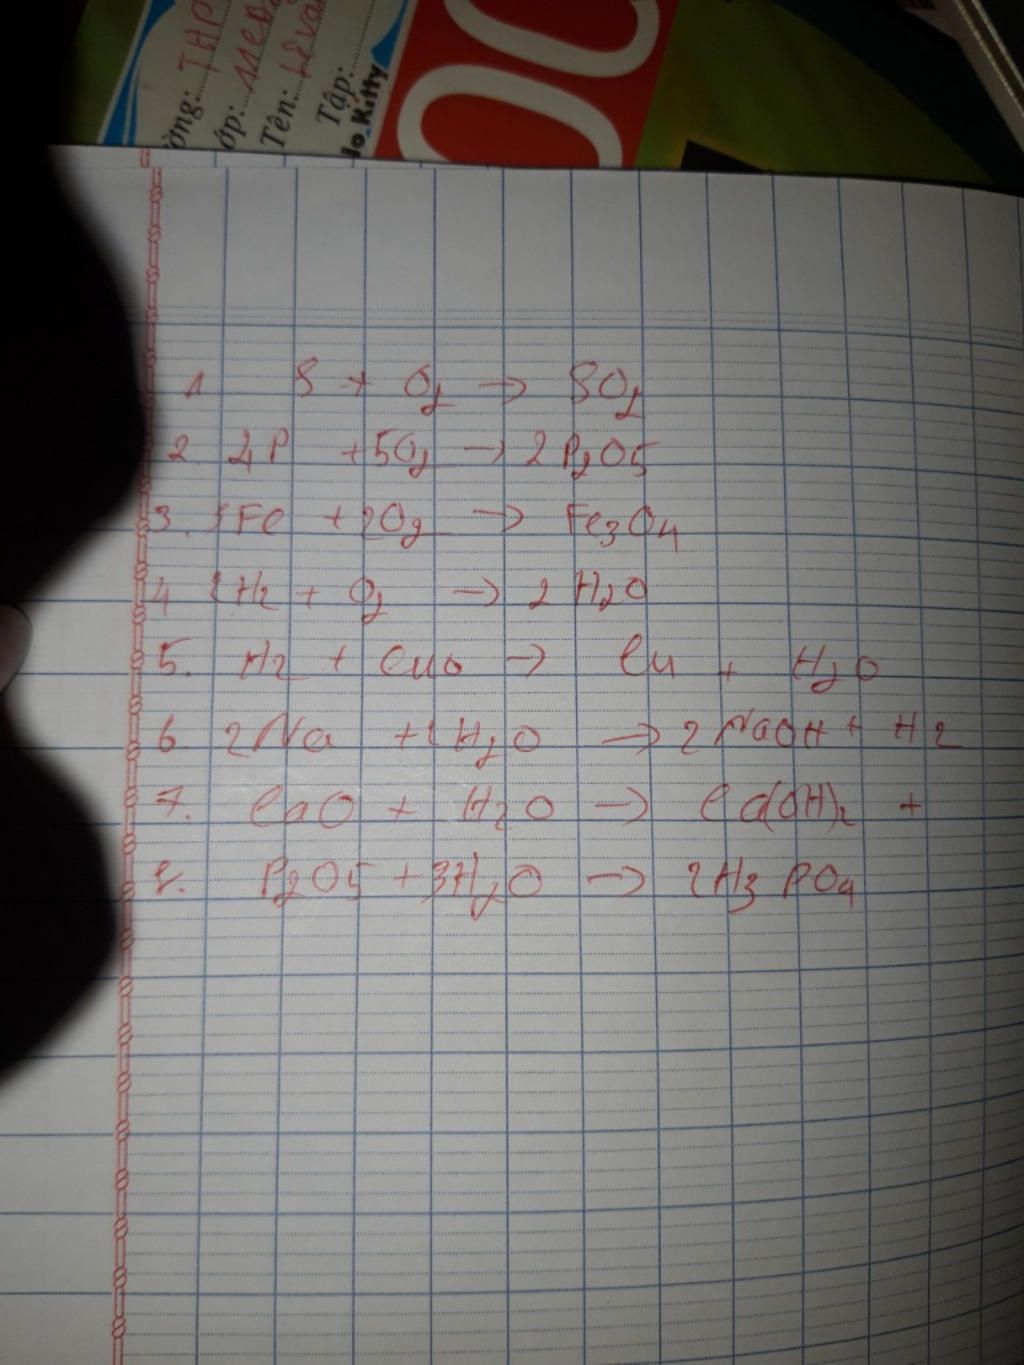 ờng: THP
ớp: 11
Tên: Lê Vă
Tập:
lo Kitty
1 S + O2 → SO2
2. 4P +5O2 → 2 P2O5
3. 3Fe + 2O2 → Fe3O4
4 2H2 + O2 → 2 H2O
5. H2 + CuO → Cu + H2O
6. 2Na + 2H2O → 2 NaOH + H2
7. CaO + H2O → Ca(OH)2 +
8. P2O5 + 3H2O → 2H3PO4